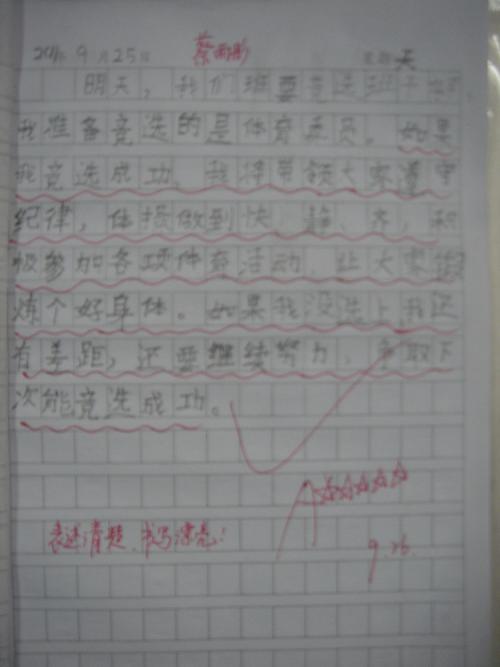 2011年9月25日 蔡雨彤 星期天
明天，我们班要竞选班干部，
我准备竞选的是体育委员。如果
我竞选成功，我将带领大家遵守
纪律，体操做到快、静、齐，积
极参加各项体育活动，让大家锻
炼个好身体。如果我没选上我还
有差距，还要继续努力，争取下
次能竞选成功。
表达清楚，书写漂亮！
9.26.